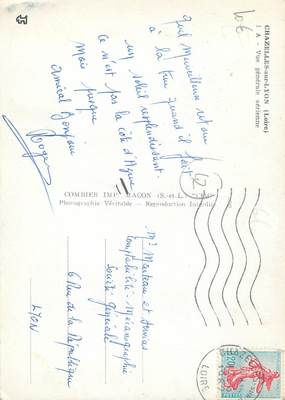 CHAZELLES-sur-LYON (Loire)
1 A - Vue générale aérienne
10€
Quel merveilleux retour
à la terre quand il fait
un soleil resplendissant.
ce n'est pas la côte d'Azur
Mais presque
amical bonjour
Roger
12
COMBIER IMP. MACON (S.-et-L.) "CIM"
Photographie Véritable - Reproduction Interdite
et Amies
Comptabilité - Mécanographie
Société Générale
6 Rue de la République
LYON
LOIRE
0,20